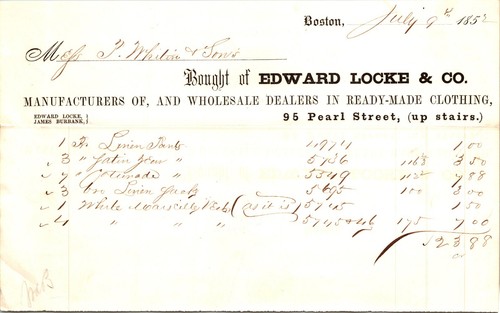 Boston, July 9th 1852
Mess T. Whiton & Sons
Bought of EDWARD LOCKE & CO.
MANUFACTURERS OF, AND WHOLESALE DEALERS IN READY-MADE CLOTHING,
EDWARD LOCKE,
JAMES BURBANK,
95 Pearl Street, (up stairs.)
1 Pr Linen Pants 1 00
3 " Satin " 5736 3 50
7 " " 5549 112 7 88
3 Linen Sacks 5695 100 3 00
1 White Marseilles Vest (as it is) 5745 1 50
4 " " " 5745 & 46 175 7 00
$ 23 88